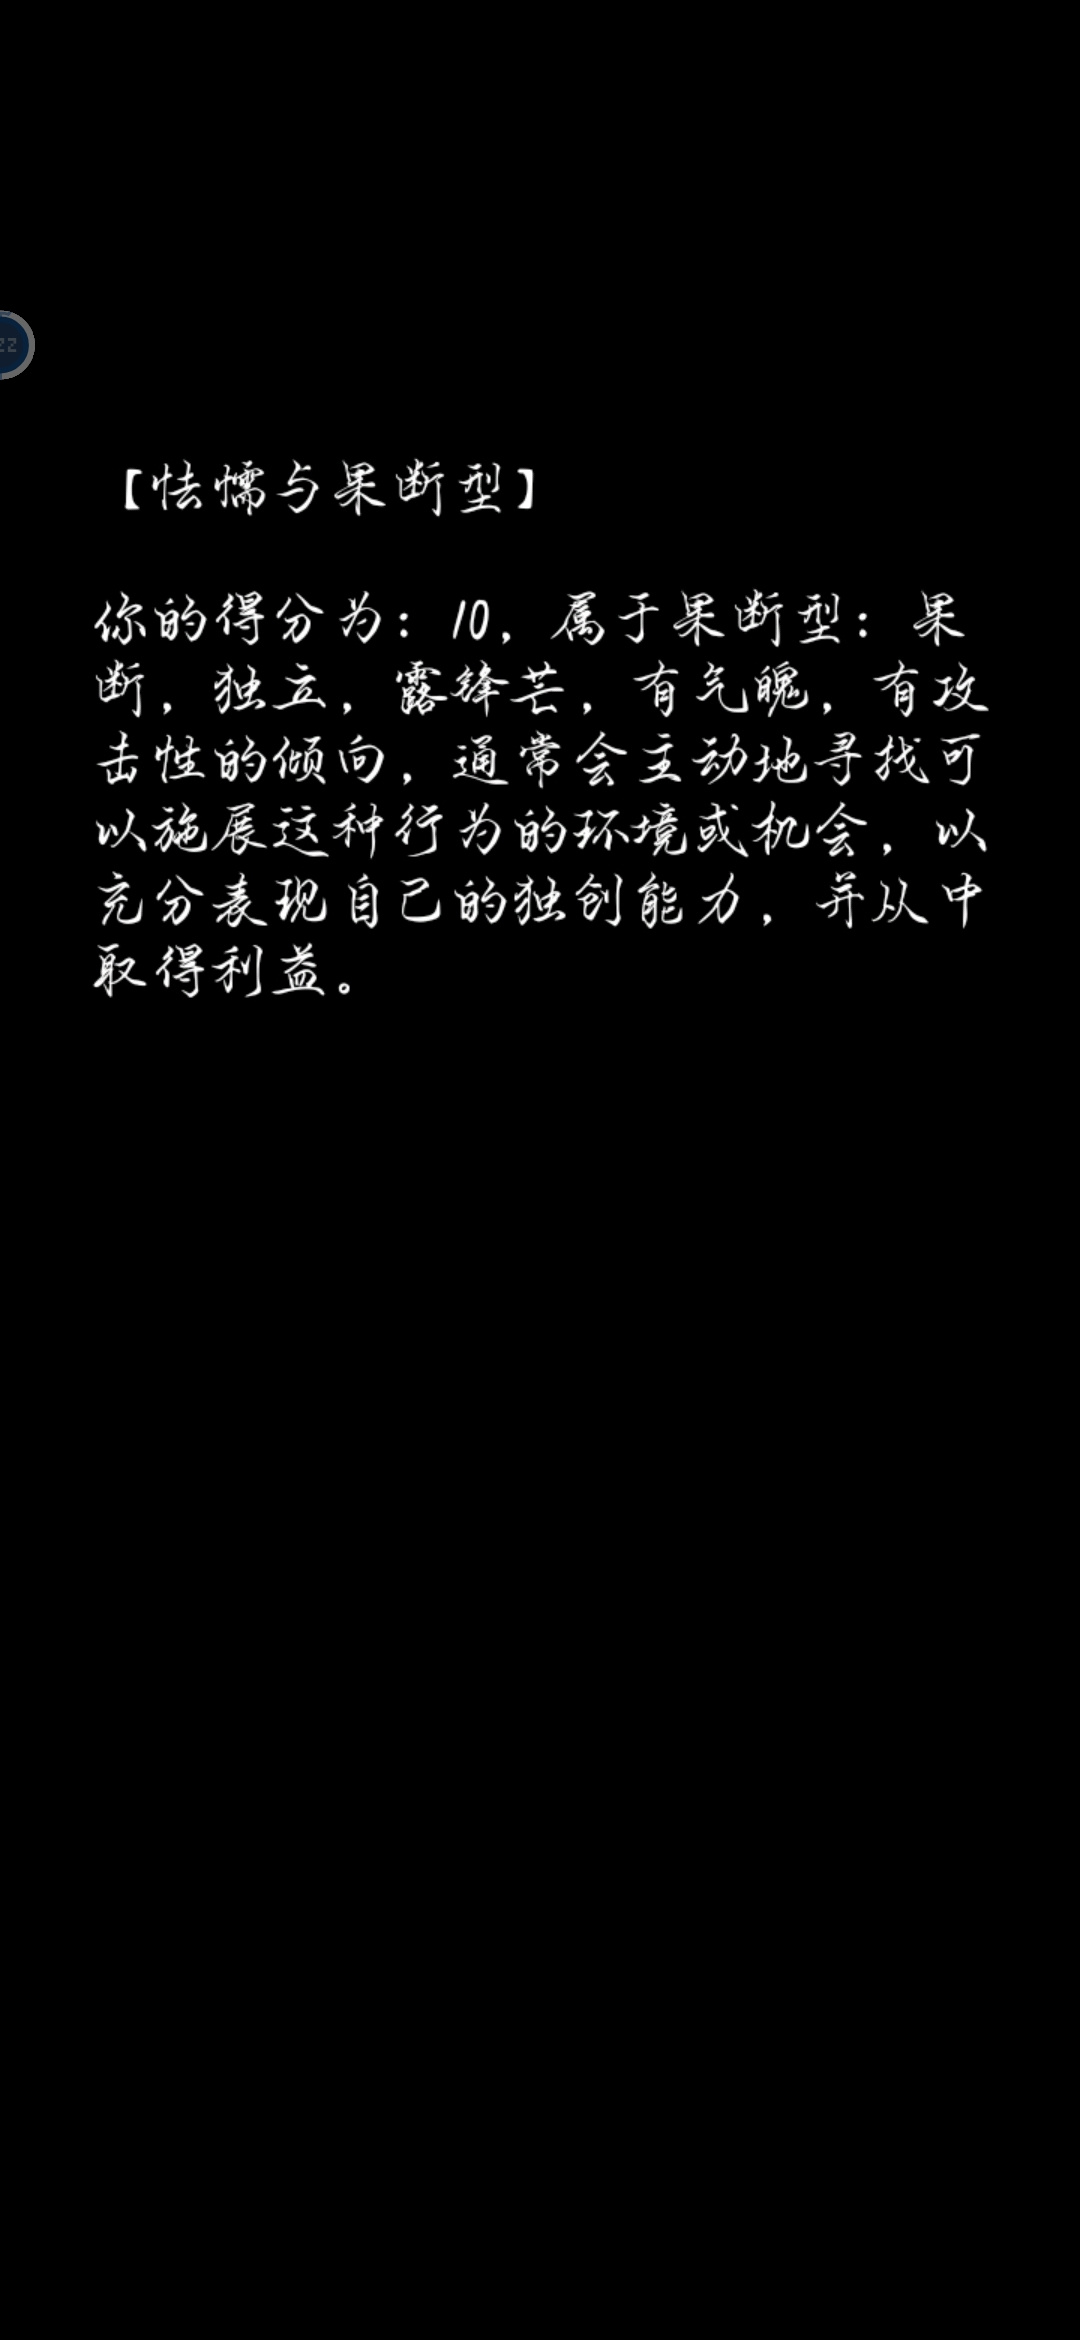 【怯懦与果断型】
你的得分为：10，属于果断型：果
断，独立，露锋芒，有气魄，有攻
击性的倾向，通常会主动地寻找可
以施展这种行为的环境或机会，以
充分表现自己的独创能力，并从中
取得利益。